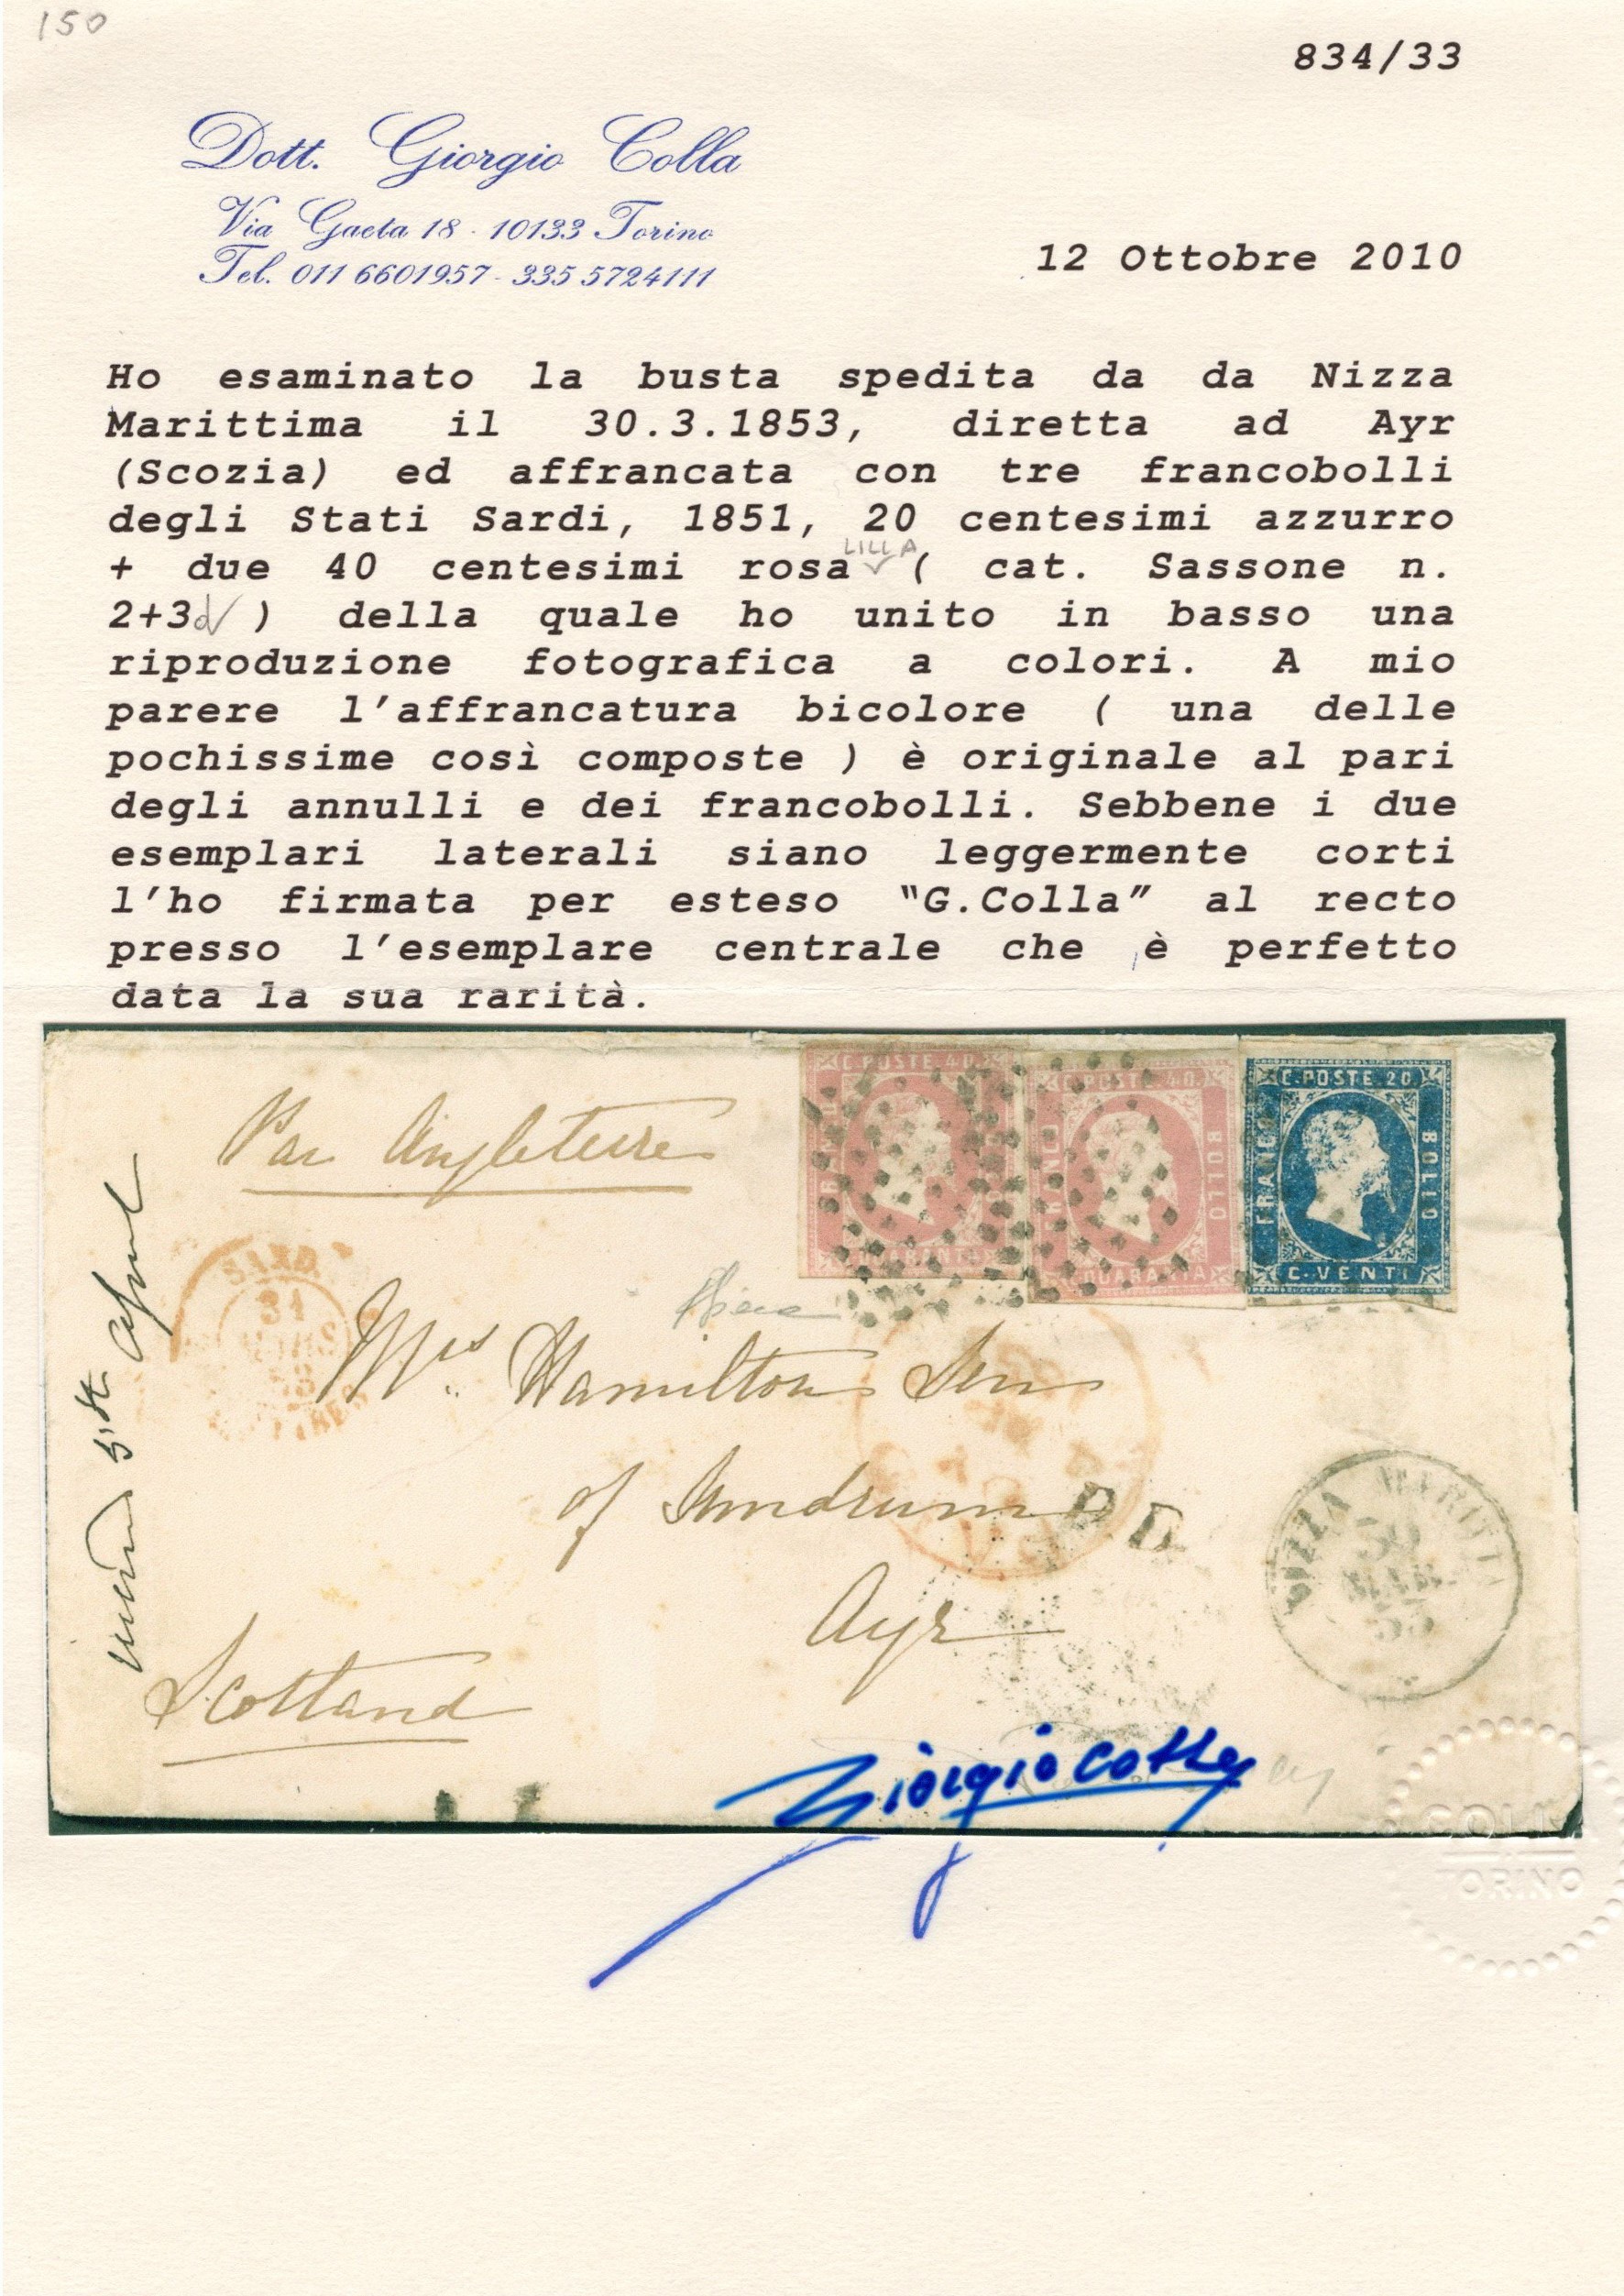 150
834/33
Dott. Giorgio Colla
Via Gaeta 18 - 10133 Torino
Tel. 011 6601957 - 335 5724111
12 Ottobre 2010
Ho esaminato la busta spedita da da Nizza
Marittima il 30.3.1853, diretta ad Ayr
(Scozia) ed affrancata con tre francobolli
degli Stati Sardi, 1851, 20 centesimi azzurro
LILLA
+ due 40 centesimi rosa ( cat. Sassone n.
2+3d ) della quale ho unito in basso una
riproduzione fotografica a colori. A mio
parere l'affrancatura bicolore ( una delle
pochissime così composte ) è originale al pari
degli annulli e dei francobolli. Sebbene i due
esemplari laterali siano leggermente corti
l'ho firmata per esteso "G.Colla" al recto
presso l'esemplare centrale che è perfetto
data la sua rarità.
C.POSTE 40.
QUARANTA
C.POSTE 40.
FRANCO
BOLLO
QUARANTA
C.POSTE 20
FRANCO
BOLLO
C.VENTI
Par Angleterre
SARD.
31
Mrs Hamilton Sen
of Sundrum
P D
Ayr
Scotland
5th April
NIZZA MARITTA
30
53
Giorgio Colla
COLLA
TORINO